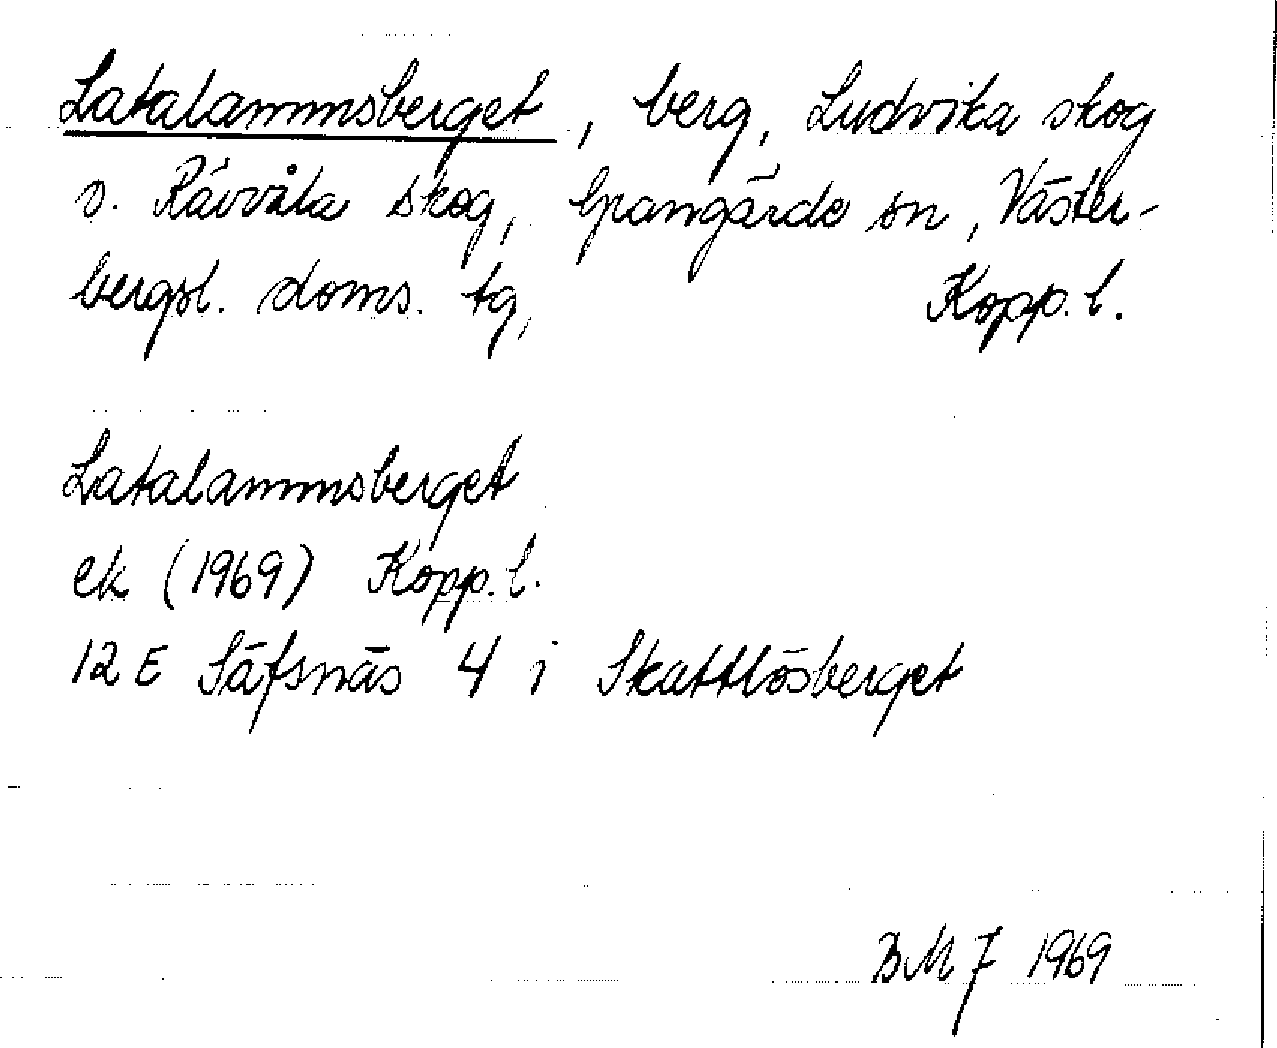 Latalammsberget, berg, Ludvika skog
o. Rävvåla skog, Grangärde sn, Väster-
bergsl. doms. tg, Kopp. l.
Latalammsberget
ek (1969) Kopp. l.
12 E Säfsnäs 4 i Skattlösberget
BMF 1969